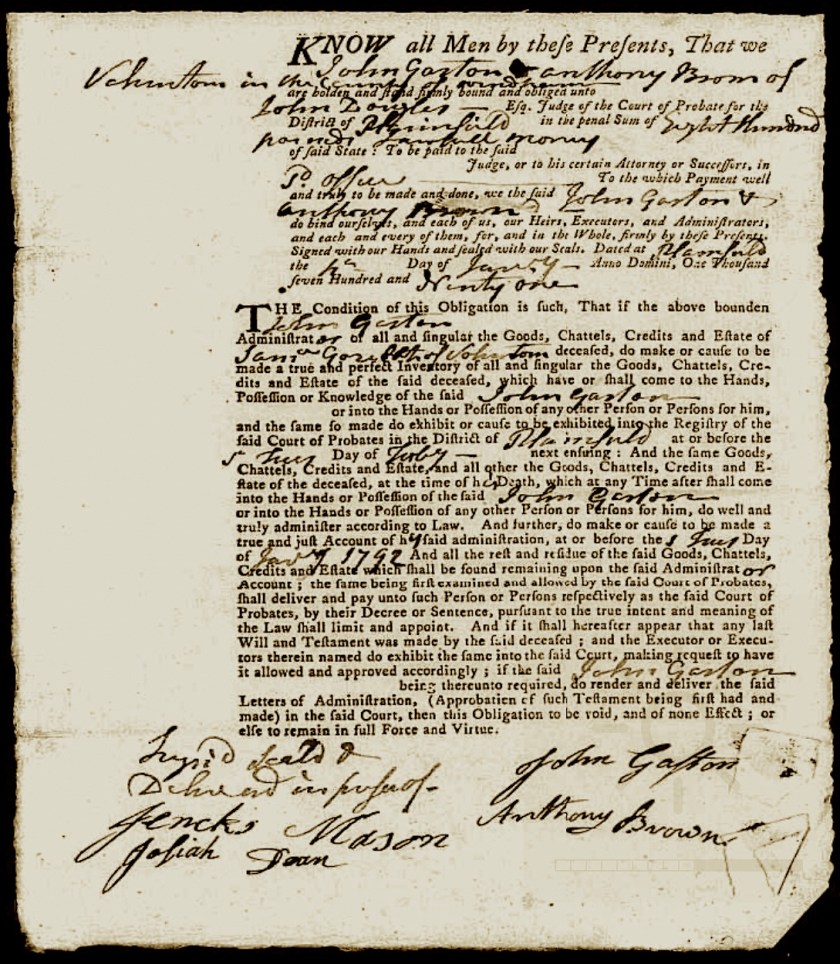 KNOW all Men by theſe Preſents, That we
John Gaston & anthony Brown of
Voluntown in the County of Windham
are holden and ſtand firmly bound and obliged unto
John Douglas Eſq. Judge of the Court of Probate for the
Diſtrict of Plainfield in the penal Sum of Eight Hundred
pounds Lawfull money
of ſaid State : To be paid to the ſaid
Judge, or to his certain Attorney or Succeſſors, in
sd. office To the which Payment well
and truly to be made and done, we the ſaid John Gaston &
Anthony Brown
do bind ourſelves, and each of us, our Heirs, Executors, and Adminiſtrators,
and each and every of them, for, and in the Whole, firmly by theſe Preſents.
Signed with our Hands and ſealed with our Seals. Dated at Plainfield
the Day of Janry Anno Domini, One Thouſand
ſeven Hundred and Ninty one
THE Condition of this Obligation is ſuch, That if the above bounden
John Gaston
Adminiſtrator of all and ſingular the Goods, Chattels, Credits and Eſtate of
of Voluntown deceaſed, do make or cauſe to be
made a true and perfect Inventory of all and ſingular the Goods, Chattels, Cre-
dits and Eſtate of the ſaid deceaſed, which have or ſhall come to the Hands,
Poſſeſſion or Knowledge of the ſaid John Gaston
or into the Hands or Poſſeſſion of any other Perſon or Perſons for him,
and the ſame ſo made do exhibit or cauſe to be exhibited into the Regiſtry of the
ſaid Court of Probates in the Diſtrict of Plainfield at or before the
Day of next enſuing : And the ſame Goods,
Chattels, Credits and Eſtate, and all other the Goods, Chattels, Credits and E-
ſtate of the deceaſed, at the time of his Death, which at any Time after ſhall come
into the Hands or Poſſeſſion of the ſaid John Gaston
or into the Hands or Poſſeſſion of any other Perſon or Perſons for him, do well and
truly adminiſter according to Law. And further, do make or cauſe to be made a
true and juſt Account of hys ſaid adminiſtration, at or before the Day
of Janry 1792 And all the reſt and reſidue of the ſaid Goods, Chattels,
Credits and Eſtate which ſhall be found remaining upon the ſaid Adminiſtrator
Account ; the ſame being firſt examined and allowed by the ſaid Court of Probates,
ſhall deliver and pay unto ſuch Perſon or Perſons reſpectively as the ſaid Court of
Probates, by their Decree or Sentence, purſuant to the true intent and meaning of
the Law ſhall limit and appoint. And if it ſhall hereafter appear that any laſt
Will and Teſtament was made by the ſaid deceaſed ; and the Executor or Execu-
tors therein named do exhibit the ſame into the ſaid Court, making requeſt to have
it allowed and approved accordingly ; if the ſaid John Gaston
being thereunto required, do render and deliver the ſaid
Letters of Adminiſtration, (Approbation of ſuch Teſtament being firſt had and
made) in the ſaid Court, then this Obligation to be void, and of none Effect ; or
elſe to remain in full Force and Virtue.
Sign'd Seald &
Deliverd in preſenc of-
Jencks Mason
Joſiah Dean
John Gaſton
Anthony Brown